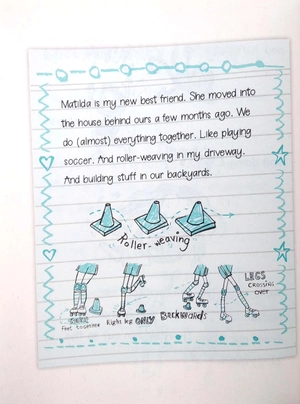 Matilda is my new best friend. She moved into
the house behind ours a few months ago. We
do (almost) everything together. Like playing
soccer. And roller-weaving in my driveway.
And building stuff in our backyards.
Roller-weaving
feet together
Right leg ONLY
Backwards
LEGS
CROSSING
OVER